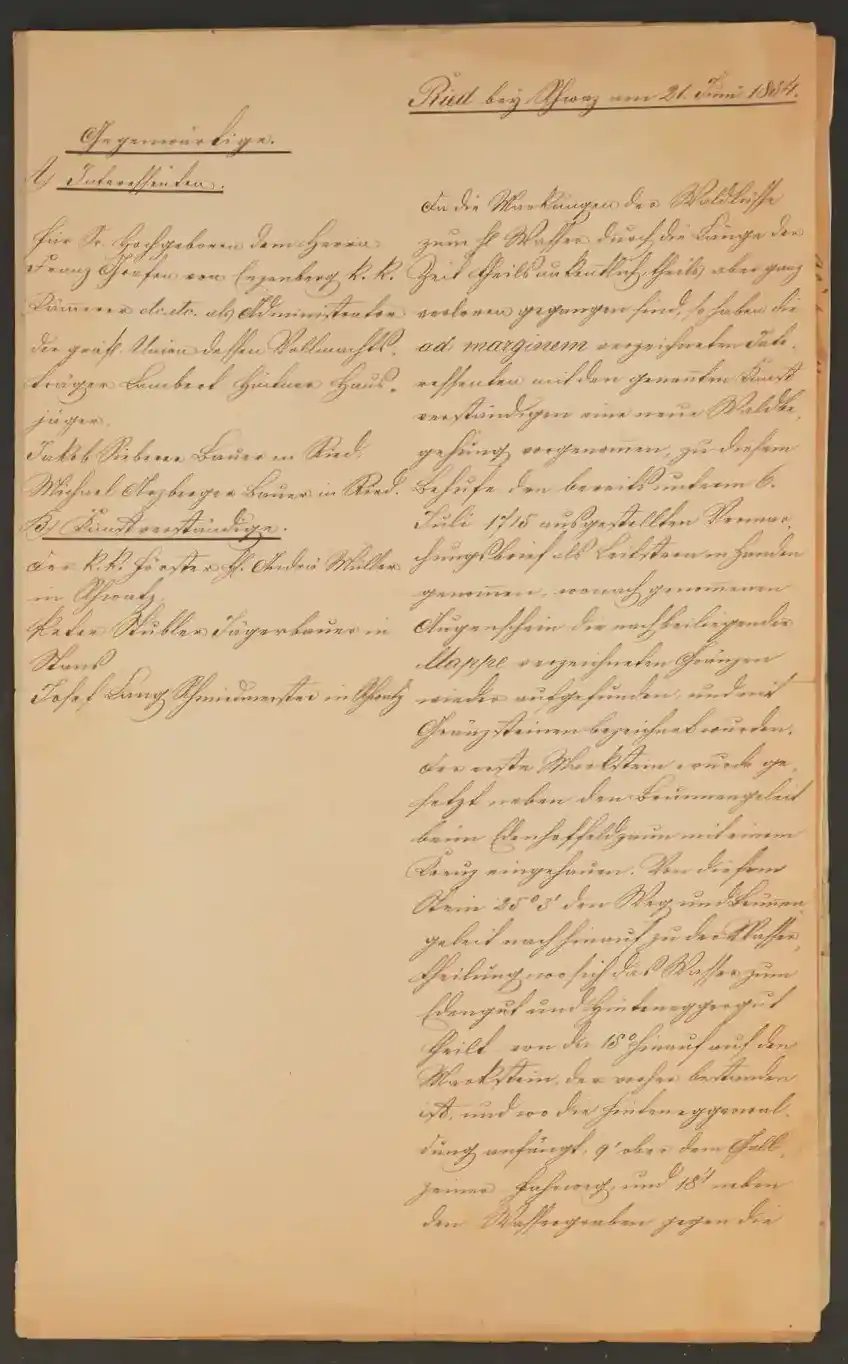 Ried bey Schwaz am 21. Juni 1884.
Gegenwärtige.
A) Interessenten.
für Sr. Hochgeboren dem Herrn
Franz Grafen von Enzenberg k. k.
Kämmerer etc. etc. als Administrator
der gräfl. Union dessen Vollmachts-
träger Lambert Hintner Haus-
jäger.
Jakob Sieberer Bauer in Ried.
Michael Arzberger Bauer in Ried.
B) Kunstverständige.
Der k. k. Förster H. Andrä Müller
in Schwatz.
Peter Stubler Jägerbauer in
Stans
Josef Lang Schmiedmeister in Schwatz
Da die Markungen der Waldküsse
zum hl Wasser durch die Länge der
Zeit theils unkentlich, theils aber ganz
verloren gegangen sind, so haben die
ad marginem verzeichneten Inte-
ressenten mit den genanten Kunst
verständigen eine neue Waldbe-
gehung vorgenommen, zu diesem
Behufe den bereits unterm 6.
Juli 1715 ausgestellten Vermar-
chungsbrief als Leitstern in Handen
genommen, wonach genommenen
Augenschein die nach beiliegender
Mappe verzeichneten Gränzen
wieder aufgefunden, und mit
Gränzsteinen bezeichnet wurden.
Der erste Markstein wurde ge-
setzt neben den Brunnengeleit
beim Edenhoffeldzaun mit einem
Kreuz eingehauen. Von diesem
Stein 25° 3' den Weg und Brunen
geleit nach hinauf zu der Wasser-
theilung wo sich das Wasser zum
Edengut und Hintereggergut
theilt von da 18° hinauf auf den
Markstein, der vorher bestanden
ist, und wo die Hintereggerwal-
dung anfängt, 9' ober dem Gall-
zeiner Fahrweg, und 18' neben
den Wassergraben gegen die